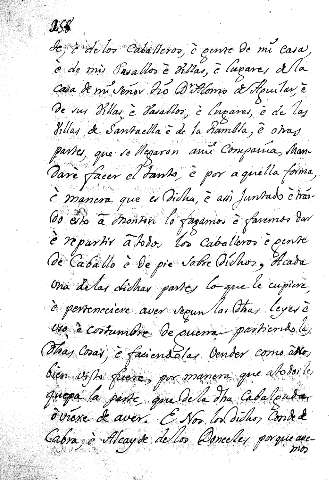 258
de, è de los Caballeros, è gente de mi casa,
è de mis Vasallos è Villas, è lugares de la
Casa de mi Señor Dn Alonso de Aguilar, è
de sus Villas è Vasallos, è lugares, è de las
Villas de Santaella è de la Rambla, è otras
partes, que se llegaron a mi Compañia, Man-
daré facer el tanto, è por aquella forma,
è manera que es Dicha, è asi Juntado è trai-
do esto à Montón lo fagamos è faremos dar
è repartir à todos los Caballeros è gente
de Caballo è de pie sobre Dichos, à cada
una de las dichas partes lo que le cupiere,
è perteneciere aver segun las Dhas Leyes è
uso è costumbre de guerra partiendo las
Dhas Cosas, è faciendolas vender como à Nos
bien visto fuere, por manera que à todos les
quepa la parte, que de la dha Cabalgada
oviere de aver. E Nos los dichos Conde de
Cabra, è Alcayde de los Donceles porque ave-
mos